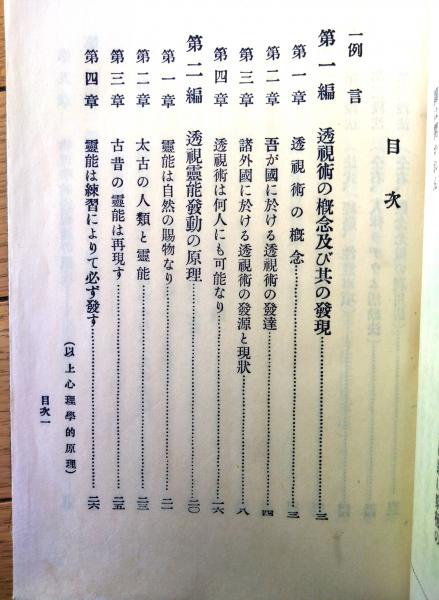 目次
一例言
第一編 透視術の概念及び其の發現……三
第一章 透視術の概念……三
第二章 吾が國に於ける透視術の發達……四
第三章 諸外國に於ける透視術の發源と現狀……八
第四章 透視術は何人にも可能なり……一六
第二編 透視靈能發動の原理……二〇
第一章 靈能は自然の賜物なり……二一
第二章 太古の人類と靈能……二三
第三章 古昔の靈能は再現す……二五
第四章 靈能は練習によりて必ず發す……二六
(以上心理學的原理)
目次一